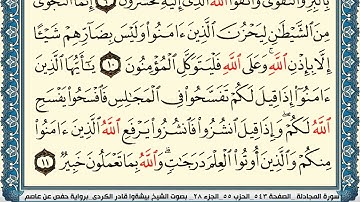 بِٱلْبِرِّ وَٱلتَّقْوَىٰ وَٱتَّقُوا۟ ٱللَّهَ ٱلَّذِىٓ إِلَيْهِ تُحْشَرُونَ ٩ إِنَّمَا ٱلنَّجْوَىٰ
مِنَ ٱلشَّيْطَٰنِ لِيَحْزُنَ ٱلَّذِينَ ءَامَنُوا۟ وَلَيْسَ بِضَآرِّهِمْ شَيْـًٔا
إِلَّا بِإِذْنِ ٱللَّهِ وَعَلَى ٱللَّهِ فَلْيَتَوَكَّلِ ٱلْمُؤْمِنُونَ ١٠ يَٰٓأَيُّهَا ٱلَّذِينَ
ءَامَنُوٓا۟ إِذَا قِيلَ لَكُمْ تَفَسَّحُوا۟ فِى ٱلْمَجَٰلِسِ فَٱفْسَحُوا۟ يَفْسَحِ
ٱللَّهُ لَكُمْ وَإِذَا قِيلَ ٱنشُزُوا۟ فَٱنشُزُوا۟ يَرْفَعِ ٱللَّهُ ٱلَّذِينَ ءَامَنُوا۟
مِنكُمْ وَٱلَّذِينَ أُوتُوا۟ ٱلْعِلْمَ دَرَجَٰتٍ وَٱللَّهُ بِمَا تَعْمَلُونَ خَبِيرٌ ١١
سورة المجادلة _ الصفحة ٥٤٣ _ الحزب ٥٥ _ الجزء ٢٨ _ بصوت الشيخ بيشةوا قادر الكردي _ برواية حفص عن عاصم